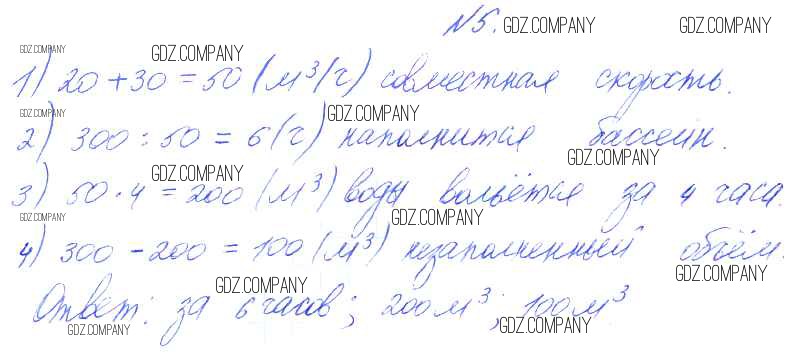 №5. GDZ.COMPANY GDZ.COMPANY
GDZ.COMPANY GDZ.COMPANY
1) 20 + 30 = 50 (м³/ч) совместная скорость.
GDZ.COMPANY GDZ.COMPANY
2) 300 : 50 = 6 (ч) наполнится бассейн.
GDZ.COMPANY GDZ.COMPANY
3) 50 · 4 = 200 (м³) воды вольётся за 4 часа.
GDZ.COMPANY GDZ.COMPANY
4) 300 - 200 = 100 (м³) незаполненный объём.
GDZ.COMPANY GDZ.COMPANY
Ответ: за 6 часов; 200 м³; 100 м³
GDZ.COMPANY GDZ.COMPANY